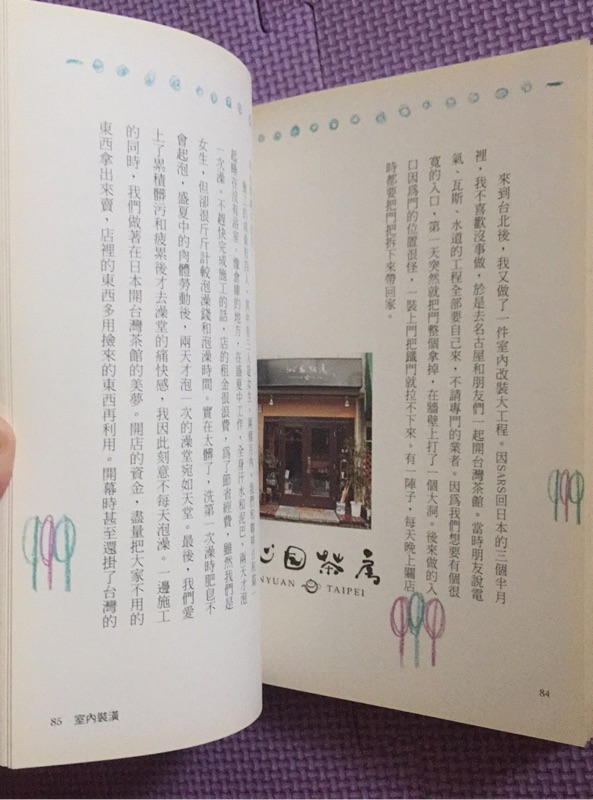 來到台北後，我又做了一件室內改裝大工程。因SARS回日本的三個半月
裡，我不喜歡沒事做，於是去名古屋和朋友們一起開台灣茶館。當時朋友說電
氣、瓦斯、水道的工程全部要自己來，不請專門的業者。因為我們想要有個很
寬的入口，第一天突然就把門整個拿掉，在牆壁上打了一個大洞。後來做的入
口因為門的位置很怪，一裝上門把鐵門就拉不下來。有一陣子，每天晚上關店
時都要把門把拆下來帶回家。
园茶房
NYUAN TAIPEI
84
在盛夏中工作，全身汗水和泥巴，兩天才泡
一次澡。不趕快完成施工的話，店的租金很浪費，為了節省經費，雖然我們是
女生，但卻很斤斤計較泡澡錢和泡澡時間。實在太髒了，洗第一次澡時肥皂不
會起泡，盛夏中的肉體勞動後，兩天才泡一次的澡堂宛如天堂。最後，我們愛
上了累積髒污和疲累後才去澡堂的痛快感，我因此刻意不每天泡澡。一邊施工
的同時，我們做著在日本開台灣茶館的美夢。開店的資金，盡量把大家不用的
東西拿出來賣，店裡的東西多用撿來的東西再利用。開幕時甚至還掛了台灣的
85 室內裝潢